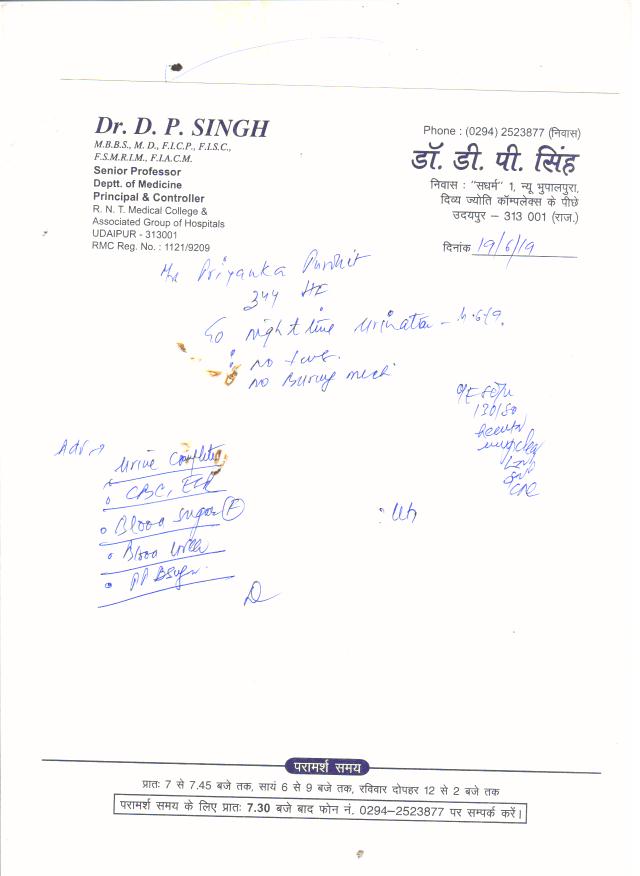 Dr. D. P. SINGH
M.B.B.S., M. D., F.I.C.P., F.I.S.C.,
F.S.M.R.I.M., F.I.A.C.M.
Senior Professor
Deptt. of Medicine
Principal & Controller
R. N. T. Medical College &
Associated Group of Hospitals
UDAIPUR - 313001
RMC Reg. No. : 1121/9209
Phone : (0294) 2523877 (निवास)
डॉ. डी. पी. सिंह
निवास : "सधर्म" 1, न्यू भुपालपुरा,
दिव्य ज्योति कॉम्पलेक्स के पीछे
उदयपुर – 313 001 (राज.)
दिनांक 19/6/19
Priyanka Purohit
night time
no
no Burning
130/80
Adv →
Urine Complete
CBC, ESR
Blood Sugar (F)
Blood Urea
PP BSugar
परामर्श समय
प्रातः 7 से 7.45 बजे तक, सायं 6 से 9 बजे तक, रविवार दोपहर 12 से 2 बजे तक
परामर्श समय के लिए प्रातः 7.30 बजे बाद फोन नं. 0294–2523877 पर सम्पर्क करें।